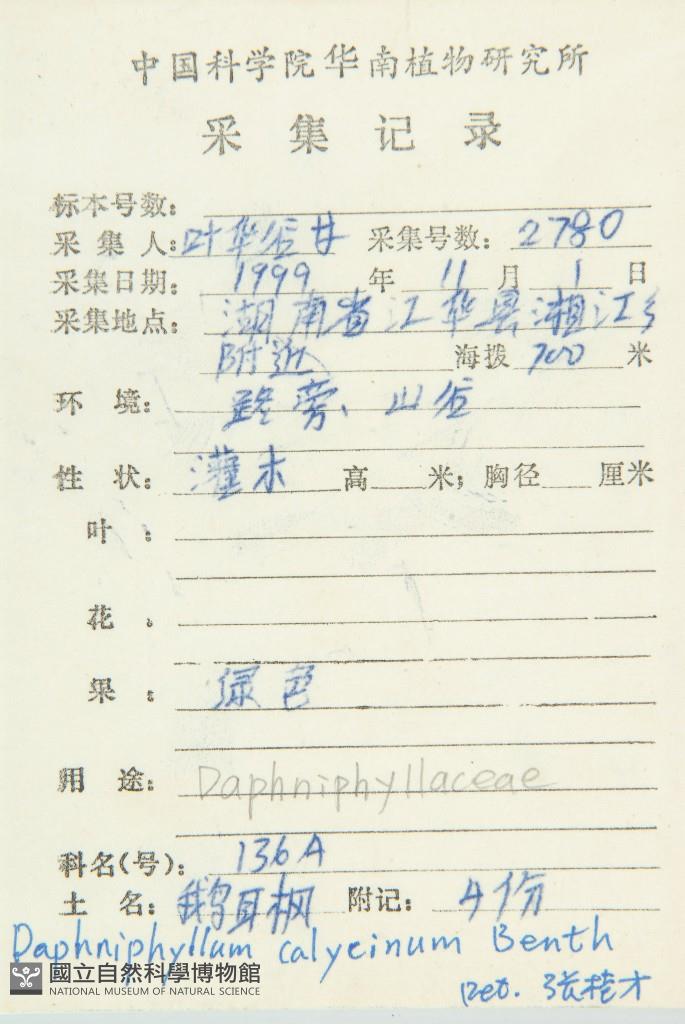 中国科学院华南植物研究所
采集记录
标本号数:
采集人: 叶华谷 采集号数: 2780
采集日期: 1999 年 11 月 1 日
采集地点: 湖南省江华县湘江乡
附近 海拨 700 米
环境: 路旁、山谷
性状: 灌木 高 米; 胸径 厘米
叶:
花:
果: 绿色
用途: Daphniphyllaceae
科名(号): 136A
土名: 鹅耳枫 附记: 4份
Daphniphyllum calycinum Benth
Det. 张桂才
國立自然科學博物館
NATIONAL MUSEUM OF NATURAL SCIENCE